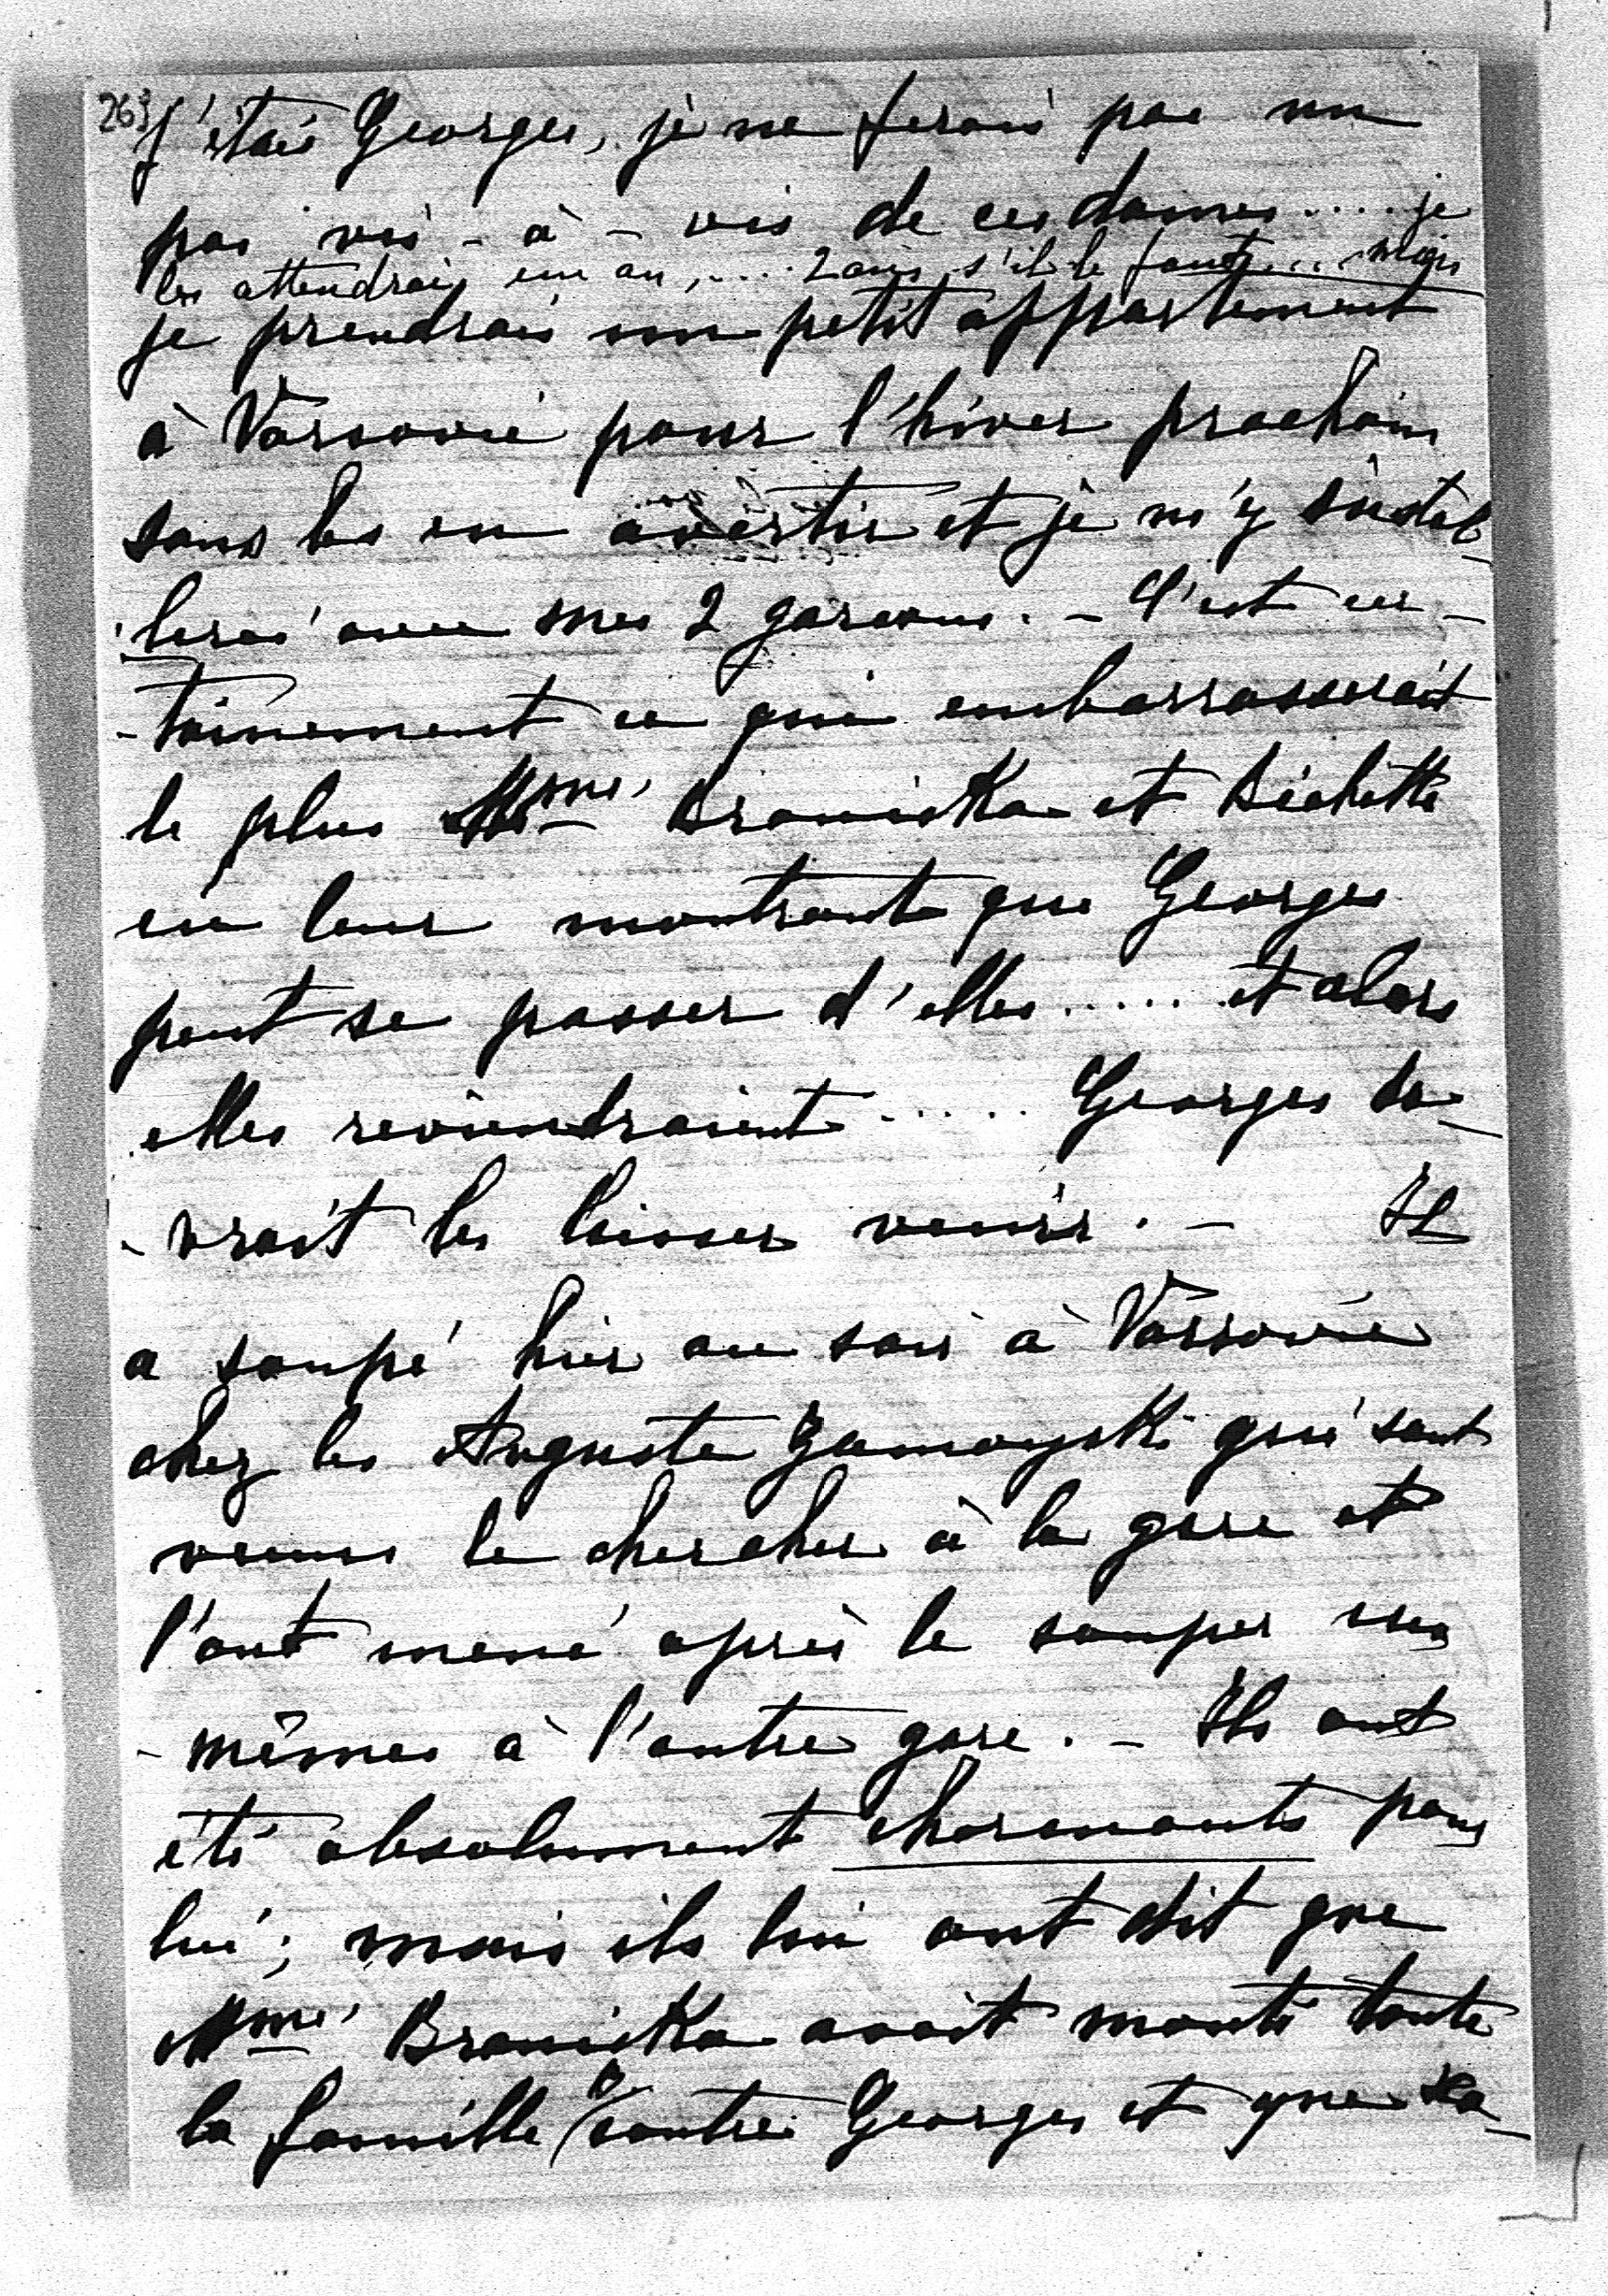 263
j'étais Georges, je ne ferais pas un
pas vis-à-vis de ces dames.... je
les attendrais un an,.... 2 ans, s'il le faut,... mais
je prendrais un petit appartement
à Varsovie pour l'hiver prochain
sans les en avertir et je m'y instal-
-lerai avec mes 2 garçons. - C'est cer-
-tainement ce qui embarrasserait
le plus Mme Branicka et Bichette
en leur montrant que Georges
peut se passer d'elles..... et alors
elles reviendraient...... Georges de-
-vrait les laisser venir. - Il
a soupé hier au soir à Varsovie
chez les Auguste Zamoyski qui sont
venus le chercher à la gare et
l'ont mené après le souper eux
-mêmes à l'autre gare. - Ils ont
été absolument charmants pour
lui; mais ils lui ont dit que
Mme Branicka avait monté toute
la famille contre Georges et que sa-